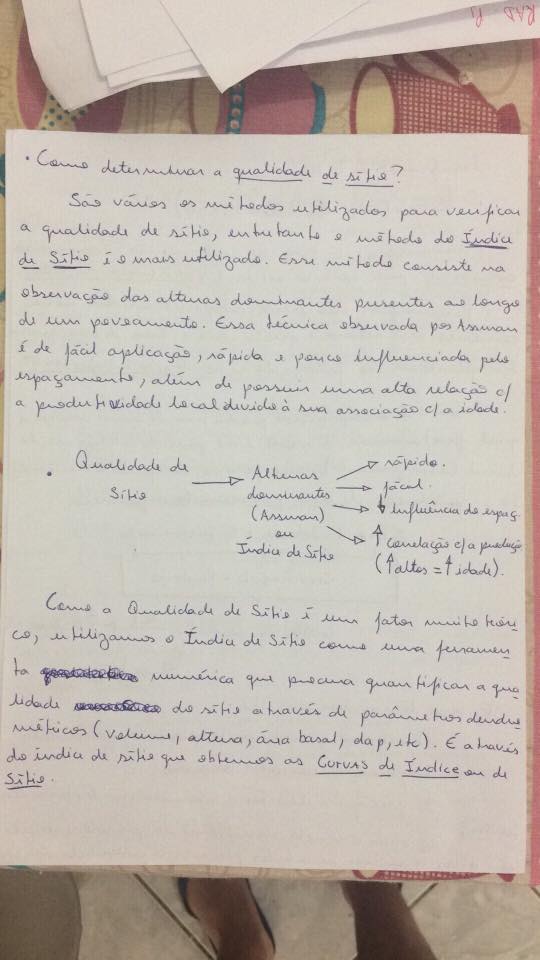 RAD P1
• Como determinar a qualidade de sítio?
São vários os métodos utilizados para verificar
a qualidade de sítio, entretanto o método do Índice
de Sítio é o mais utilizado. Esse método consiste na
observação das alturas dominantes presentes ao longo
de um povoamento. Essa técnica observada por Assman
é de fácil aplicação, rápida e pouco influenciada pelo
espaçamento, além de possuir uma alta relação c/
a produtividade local devido à sua associação c/ a idade.
• Qualidade de Sítio → Alturas dominantes (Assman) ou Índice de Sítio
→ rápido.
→ fácil.
→ ↓ Influência do espaç.
→ ↑ correlação c/ a produção
(↑ altos = ↑ idade).
Como a Qualidade de Sítio é um fator muito teóri-
co, utilizamos o Índice de Sítio como uma ferramen-
ta numérica que procura quantificar a qua
lidade do sítio através de parâmetros dendro
métricos (volume, altura, área basal, dap, etc). É através
do índice de sítio que obtemos as Curvas de Índice ou de
Sítio.